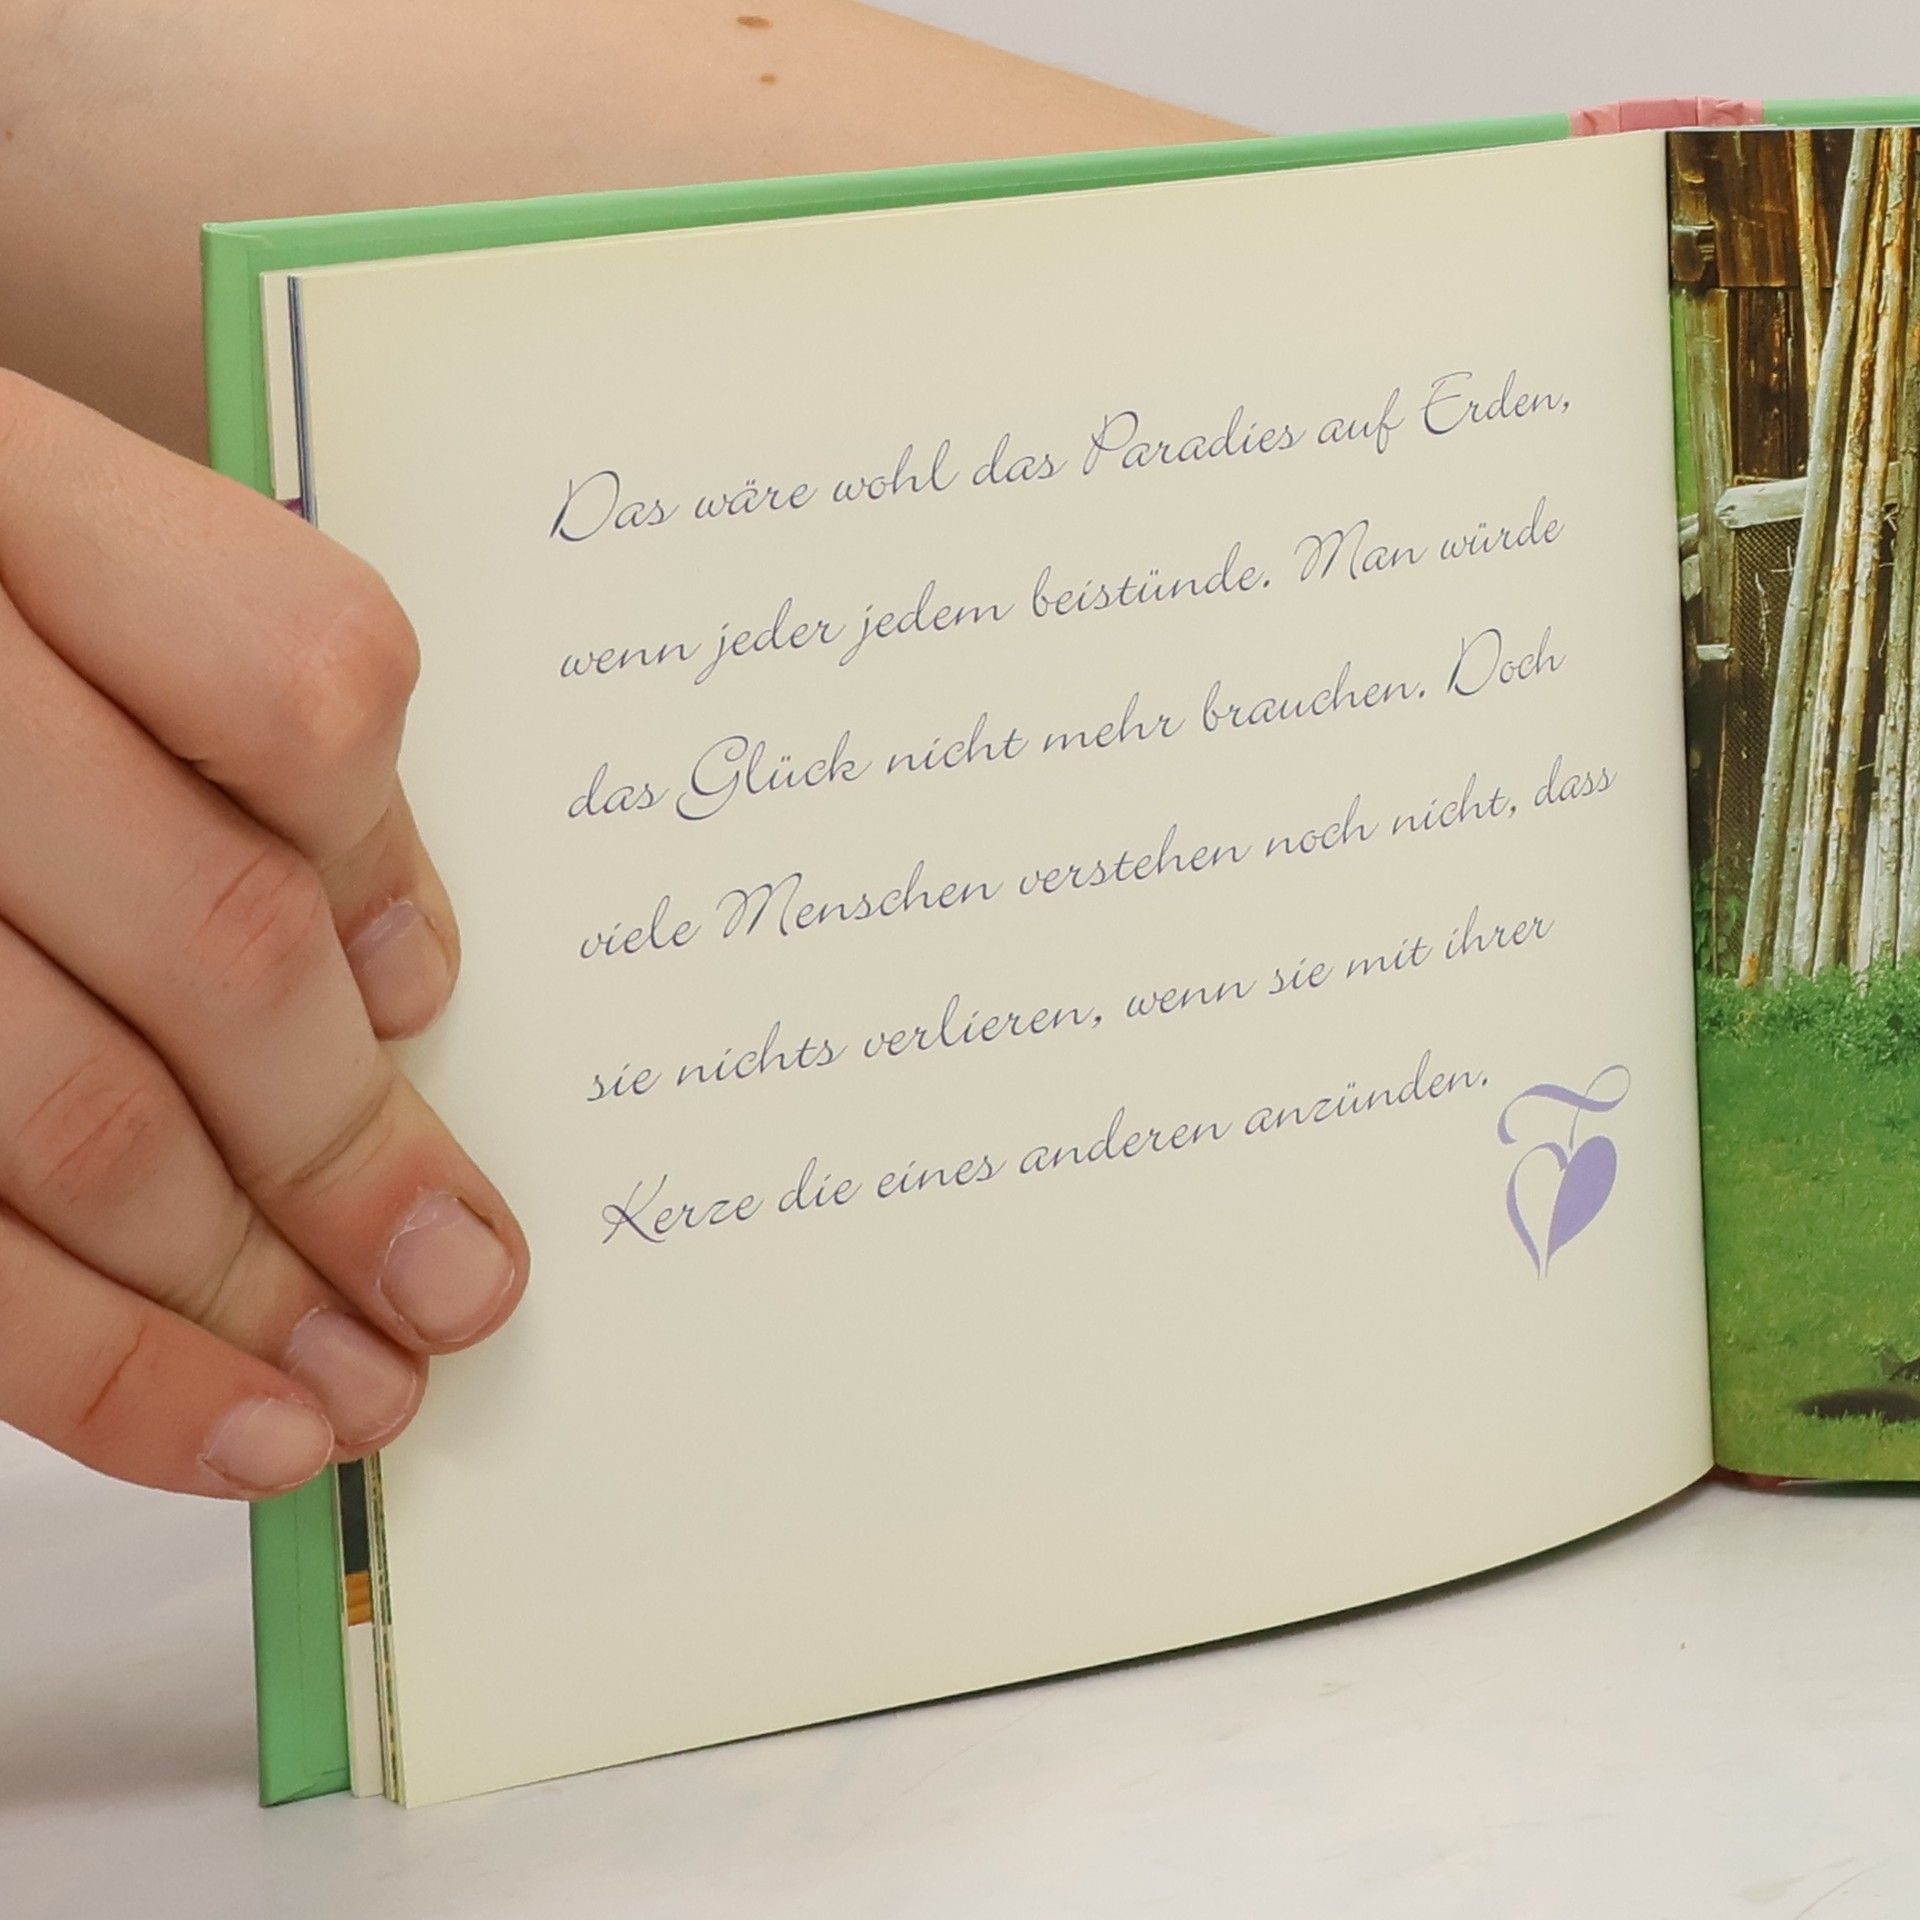 Das wäre wohl das Paradies auf Erden,
wenn jeder jedem beistünde. Man würde
das Glück nicht mehr brauchen. Doch
viele Menschen verstehen noch nicht, dass
sie nichts verlieren, wenn sie mit ihrer
Kerze die eines anderen anzünden.